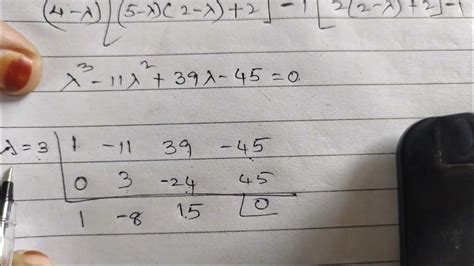 (4-λ)[(5-λ)(2-λ)+2] -1[2(2-λ)+2]-1
λ³ - 11λ² + 39λ - 45 = 0
λ = 3 | 1 -11 39 -45
0 3 -24 45
1 -8 15 0